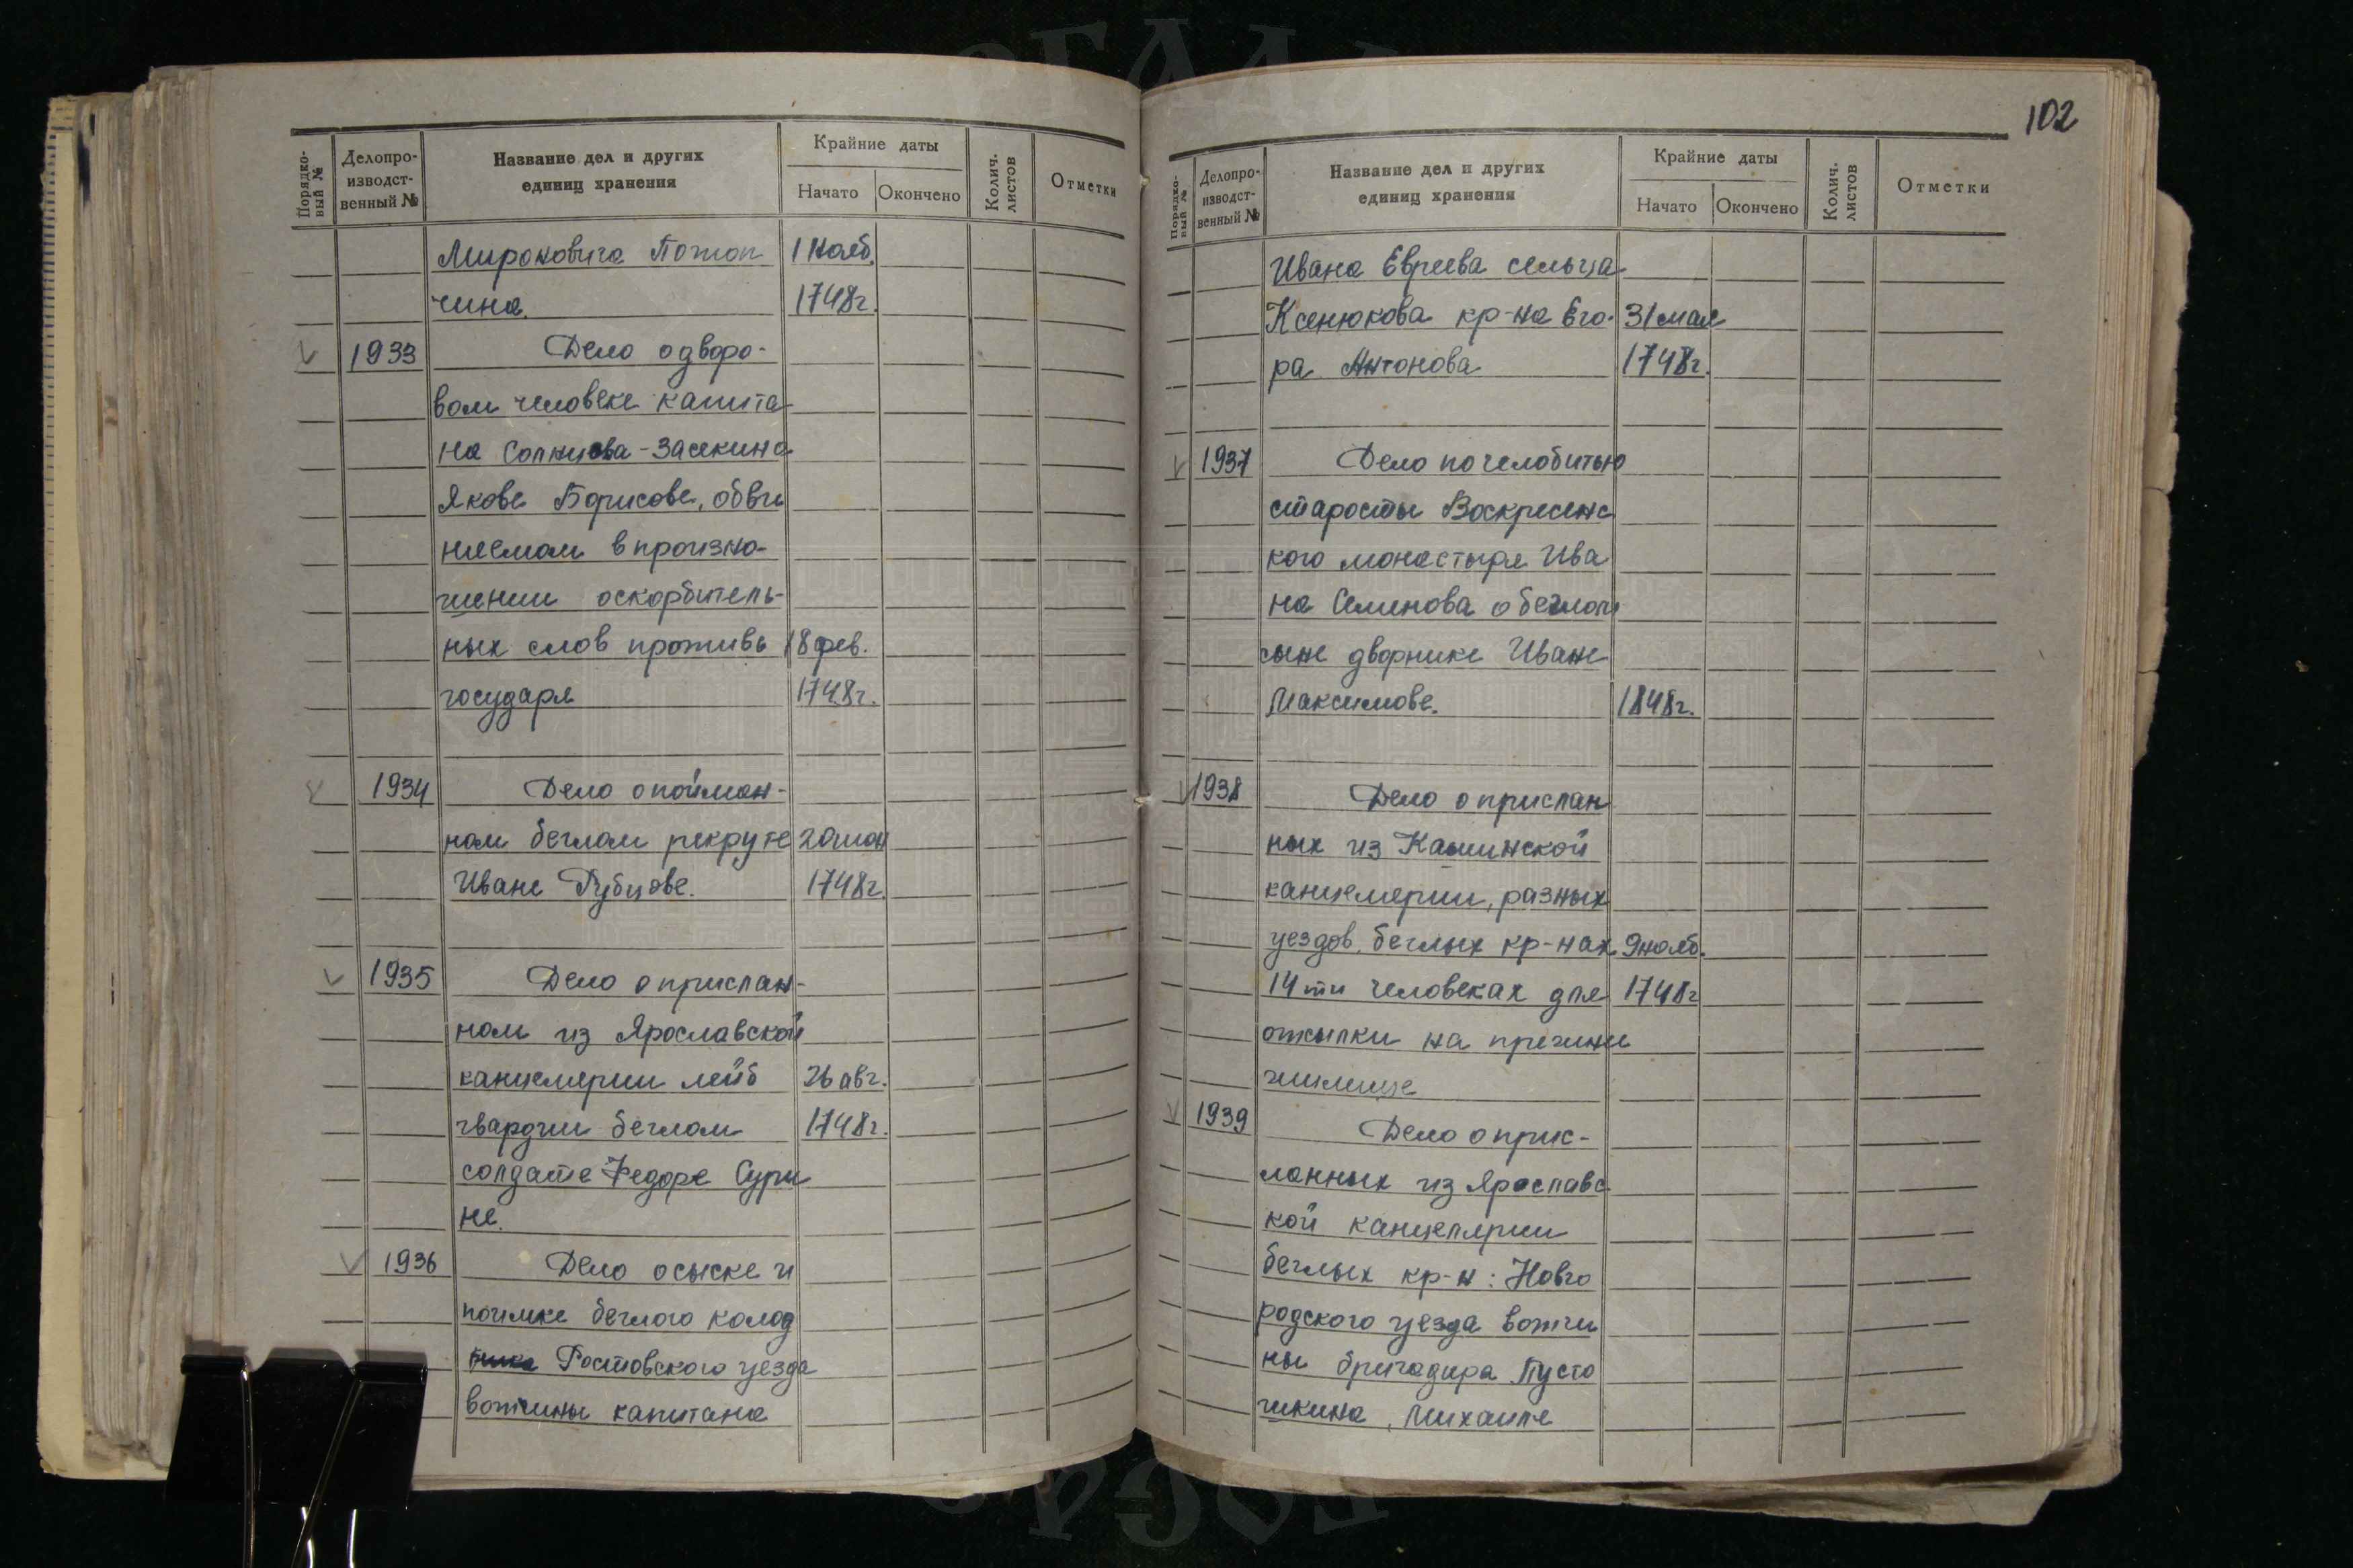 102
Порядко-
вый №
Делопро-
изводст-
венный №
Название дел и других
единиц хранения
Крайние даты
Начато
Окончено
Колич.
листов
Отметки
Мироновича Потоп 1 нояб.
чина. 1748г.
1933 Дело о дворо-
вом человеке капита
на Солнцова-Засекина
Якове Борисове, обви
няемом в произно-
шении оскорбитель-
ных слов противь 18 фев.
государя 1748г.
1934 Дело о пойман-
ном беглом рекруте 20 июн
Иване Рубцове. 1748г.
1935 Дело о прислан-
ном из Ярославской
канцелярии лейб 26 авг.
гвардии беглом 1748г.
солдате Федоре Сури
не.
1936 Дело о сыске и
поимке беглого колод
Ростовского уезда
вотчины капитана
Порядко-
вый №
Делопро-
изводст-
венный №
Название дел и других
единиц хранения
Крайние даты
Начато
Окончено
Колич.
листов
Отметки
Ивана Евреева сельца
Ксенюкова кр-на Его- 31 мая
ра Антонова 1748г.
1937 Дело по челобитью
старосты Воскресенс
кого монастыря Ива
на Семенова о беглом
сыне дворнике Иване
Максимове. 1848г.
1938 Дело о прислан
ных из Кашинской
канцелярии, разных
уездов, беглых кр-нах 9 нояб.
14 ти человеках для 1748г
отсылки на
жилище
1939 Дело о прис-
ланных из Ярославс
кой канцелярии
беглых кр-н: Новго
родского уезда вотчи
ны бригадира Пусто
шкина, Михаиле